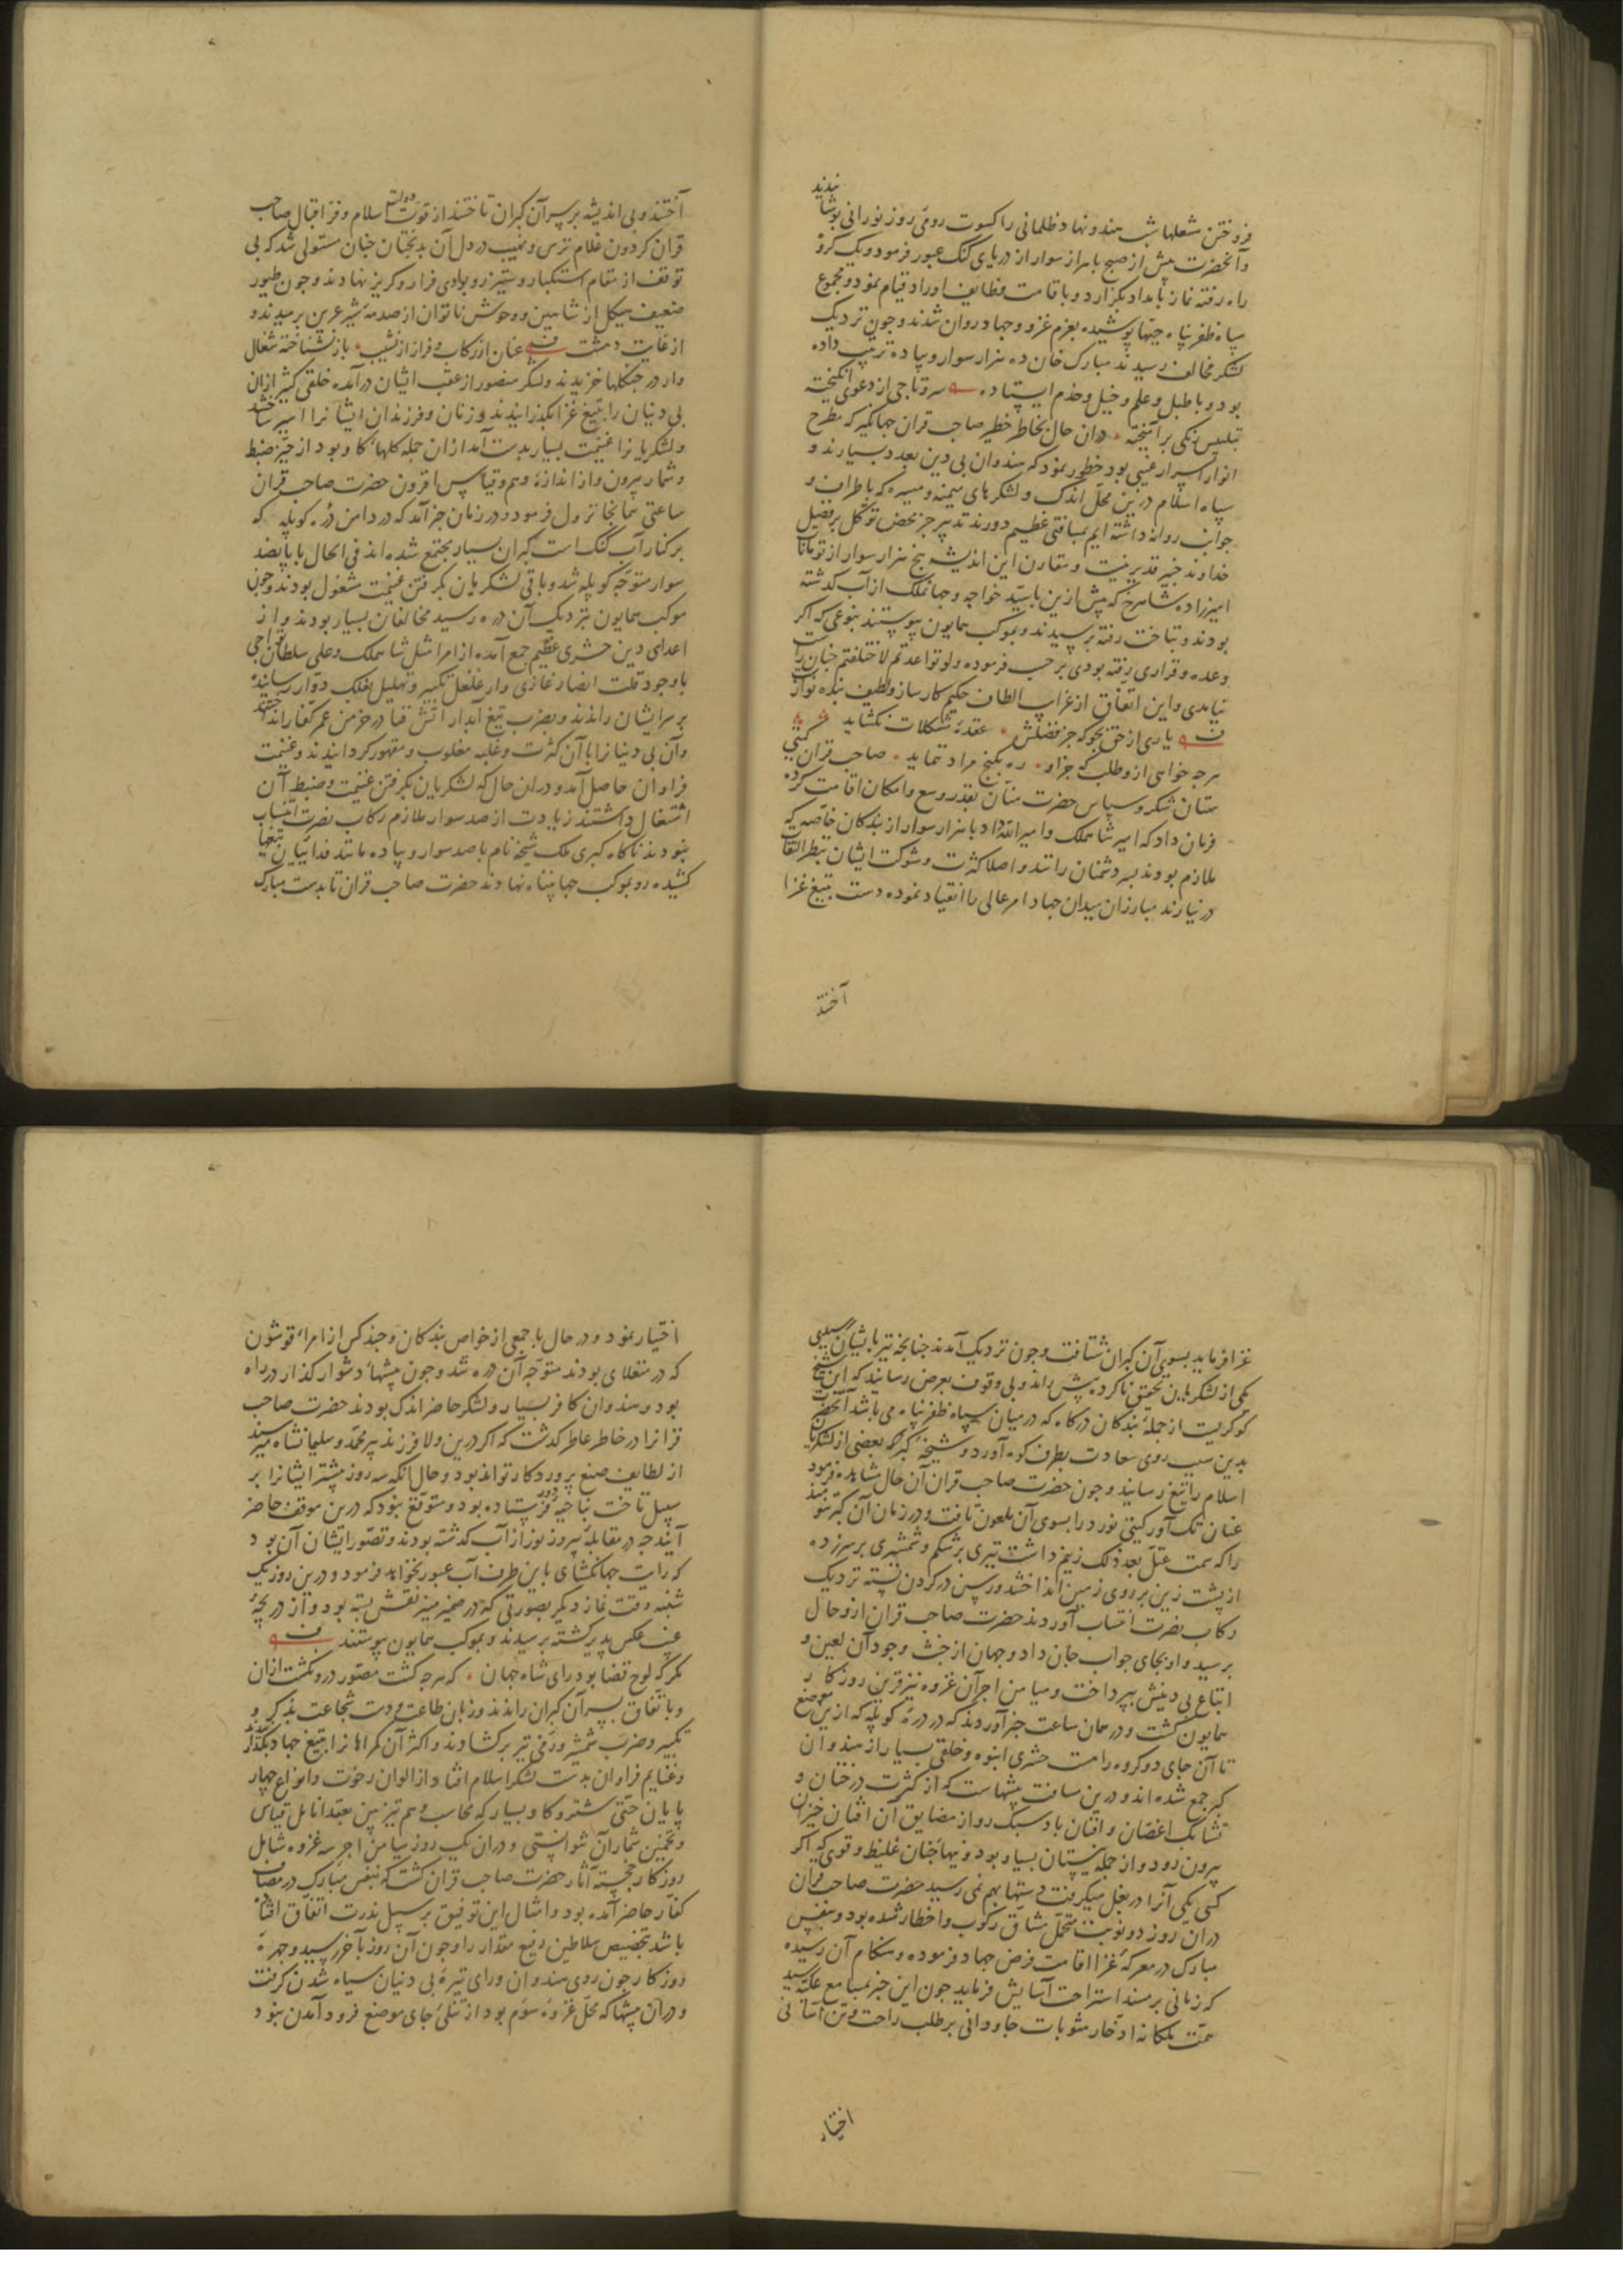 فروختن مشعلها شب هندو نهاد ظلمانی را کسوت رومی روز نورانی پوشانیدند
و آنحضرت پیش از صبح با هزار سوار از دریای کنک عبور فرمود و یک کروه
راه رفته نماز بامداد بگزارد و باقامت وظایف اوراد قیام نمود و مجموع
سپاه ظفر پناه جیبها پوشیده بعزم غزو و جهاد روان شدند و چون نزدیک
لشکر مخالف رسیدند مبارک خان ده هزار سوار و پیاده ترتیب داده
بود و با طبل و علم و خیل و خدم ایستاده سر و تاجی از دعوی انکیخته
تبلیس رنکی برآمیخته دران حال بخاطر خطیر صاحب قران جهانکیر که مطرح
انوار اسرار غیبی بود خطور نمود که هندوان بی دین بعدد بسیارند و
سپاه اسلام درین محل اندک و لشکرهای میمنه و میسره که باطراف و
جوانب روانه داشته ایم بمسافتی عظیم دورند تدبیر جز محض توکل بر فضل
خداوند خبیر قدیر نیست و مقارن این اندیشه پنج هزار سوار از تومانات
امیرزاده شاهرخ که پیش ازین با سید خواجه و جهانملک از آب کذشته
بودند و بتاخت رفته برسیدند و بموکب همایون پیوستند بنوعی که اکر
وعده و قراری رفته بودی برحسب فرموده ولو تواعدتم لاختلفتم چنان راست
نیامدی و این اتفاق از غرایب الطاف حکیم کارساز و لطیف بنده نواز
یاری از حق بجو که جز فضلش عقدهٔ مشکلات نکشاید
هر چه خواهی ازو طلب که جز او ره بکنج مراد ننماید صاحب قران کیتی
ستان شکر و سپاس حضرت منان بقدر وسع و امکان اقامت کرده
فرمان داد که امیر شاهملک و امیر الله داد با هزار سوار از بندکان خاصه که
ملازم بودند بر دشمنان رانند و اصلا کثرت و شوکت ایشان بنظر التفات
در نیارند مبارزان میدان جهاد امر عالی را انقیاد نموده دست بتیغ غزا
آختند
آختند و بی اندیشه بر سر آن کبران تاختند از قوت دولت اسلام و فر اقبال صاحب
قران کردون غلام ترس و نهیب در دل آن بدبختان چنان مستولی شد که بی
توقف از مقام استکبار و ستیز رو بوادی فرار و کریز نهادند و چون طیور
ضعیف هیکل از شاهین و وحوش ناتوان از صدمهٔ شیر عرین برمیدند و
از غایت دهشت عنان از رکاب و فراز از نشیب باز نشناخته شغال
وار در جنکلها خزیدند و لشکر منصور از عقب ایشان درآمده خلقی کثیر ازان
بی دینان را بتیغ غزا بکذرانیدند و زنان و فرزندان ایشانرا اسیر ساختند
و لشکریانرا غنیمت بسیار بدست آمد ازان جمله کلهاء کاو بود از حیز ضبط
و شمار بیرون و از اندازهٔ وهم و قیاس افزون حضرت صاحب قران
ساعتی همانجا نزول فرمود و در زمان خبر آمد که در دامن درهٔ کوپله که
بر کنار آب کنک است کبران بسیار مجتمع شده اند فی الحال با پانصد
سوار متوجه کوپله شد و باقی لشکریان بکرفتن غنیمت مشغول بودند و چون
موکب همایون بنزدیک آن دره رسید مخالفان بسیار بودند و از
اعدای دین حشری عظیم جمع آمده از امرا مثل شاهملک و علی سلطان تواجی
با وجود قلت انصار غازی وار غلغل تکبیر و تهلیل بفلک دوار رسانیده
بر سر ایشان راندند و بضرب تیغ آبدار آتش فنا در خرمن عمر کفار انداختند
و آن بی دینانرا با آن کثرت و غلبه مغلوب و مقهور کردانیدند و غنیمت
فراوان حاصل آمد و دران حال که لشکریان بکرفتن غنیمت و ضبط آن
اشتغال داشتند زیادت از صد سوار ملازم رکاب نصرت انتساب
نبودند ناکاه کبری ملک شیخه نام با صد سوار و پیاده مانند فداییان تیغها
کشیده رو بموکب جهان پناه نهادند حضرت صاحب قران تا بدست مبارک
غزا فرماید بسوی آن کبران شتافت و چون نزدیک آمدند چنانچه تیر بایشان رسیدی
یکی از لشکریان تحقیق ناکرده پیش راند و بی وقوف بعرض رسانید که این شیخ
کوکریست از جملهٔ بندکان درکاه که در میان سپاه ظفر پناه می باشد آنحضرت
بدین سبب روی سعادت بطرف کوه آورد و شیخهٔ کبر بعضی از لشکریان
اسلام را تیغ رسانید و چون حضرت صاحب قران آن حال مشاهده فرمود
عنان تک آور کیتی نورد را بسوی آن ملعون تافت و در زمان آن کبر تنومند
را که سمت عتل بعد ذلک زنیم داشت تیری بر شکم و شمشیری بر سر زده
از پشت زین بر روی زمین انداختند و رسن در کردن بسته نزدیک
رکاب نصرت انتساب آوردند حضرت صاحب قران ازو حال
پرسید و او بجای جواب جان داد و جهان از خبث وجود آن لعین و
اتباع بی دینش بپرداخت و میامن اجر آن غزوه نیز قرین روزکار
همایون کشت و در همان ساعت خبر آوردند که در درهٔ کوپله که ازین موضع
تا آن جای دو کروه راهست حشری انبوه و خلقی بسیار از هندوان
کبر جمع شده اند و درین مسافت بیشهاست که از کثرت درختان و
تشابک اغصان و افنان باد سبک رو از مضایق آن افتان خیزان
بیرون رود و از جمله نیستان بسیار بود و نیهاء چنان غلیظ و قوی که اکر
کسی یکی آنرا در بغل میکرفت دستها بهم نمی رسید حضرت صاحب قران
دران روز دو نوبت متحمل مشاق رکوب و اخطار شده بود و بنفس
مبارک در معرکهٔ غزا اقامت فرض جهاد فرموده و هنکام آن رسیده
که زمانی بر مسند استراحت آسایش فرماید چون این خبر بمسامع علیه رسید
همت ملکانه ادخار مثوبات جاودانی بر طلب راحت و تن آسانی
اختیار
اختیار نمود و در حال با جمعی از خواص بندکان و چند کس از امراء قوشون
که در منغلای بودند متوجه آن دره شد و چون بیشهاء دشوار کذار در راه
بود و هندوان کافر بسیار و لشکر حاضر اندک بودند حضرت صاحب
قرانرا در خاطر عاطر کذشت که اکر درین ولا فرزند پیر محمد و سلیمانشاه میرسند
از لطایف صنع پروردکار تواند بود و حال آنکه سه روز پیشتر ایشانرا بر
سبیل تاخت بناحیه دور فرستاده بود و متوقع نبود که درین موقف حاضر
آیند چه در مقابلهٔ پیروز نور از آب کذشته بودند و تصور ایشان آن بود
که رایت جهانکشای باین طرف آب عبور نخواهد فرمود و درین روز یک
شنبه وقت نماز دیکر بصورتی که در ضمیر منیر نقش بسته بود و از دریچهٔ
غیب عکس پذیر کشته برسیدند و بموکب همایون پیوستند
مکر که لوح قضا بود رای شاه جهان که هر چه کشت مصور درو نکشت ازان
و باتفاق بسر آن کبران راندند و زبان طاعت و دست شجاعت بذکر و
تکبیر و ضرب شمشیر و رمی تیر برکشادند و اکثر آن کمراهانرا بتیغ جهاد بکذرانیدند
و غنایم فراوان بدست لشکر اسلام افتاد از الوان رخوت و انواع چهار
پایان حتی شتر و کاو بسیار که محاسب وهم تیزبین بعقد انامل قیاس
و تخمین شمار آن نتوانستی و دران یک روز میامن اجر سه غزوه شامل
روزکار خجسته آثار حضرت صاحب قران کشت که بنفس مبارک در مصاف
کفار حاضر آمده بود و امثال این توفیق بر سبیل ندرت اتفاق افتاده
باشد بتخصیص سلاطین رفیع مقدار را و چون آن روز بآخر رسید و چهرهٔ
روزکار چون روی هندوان و رای تیرهٔ بی دینان سیاه شدن کرفت
و دران بیشها که محل غزوهٔ سوم بود از تنکی جای موضع فرود آمدن نبود